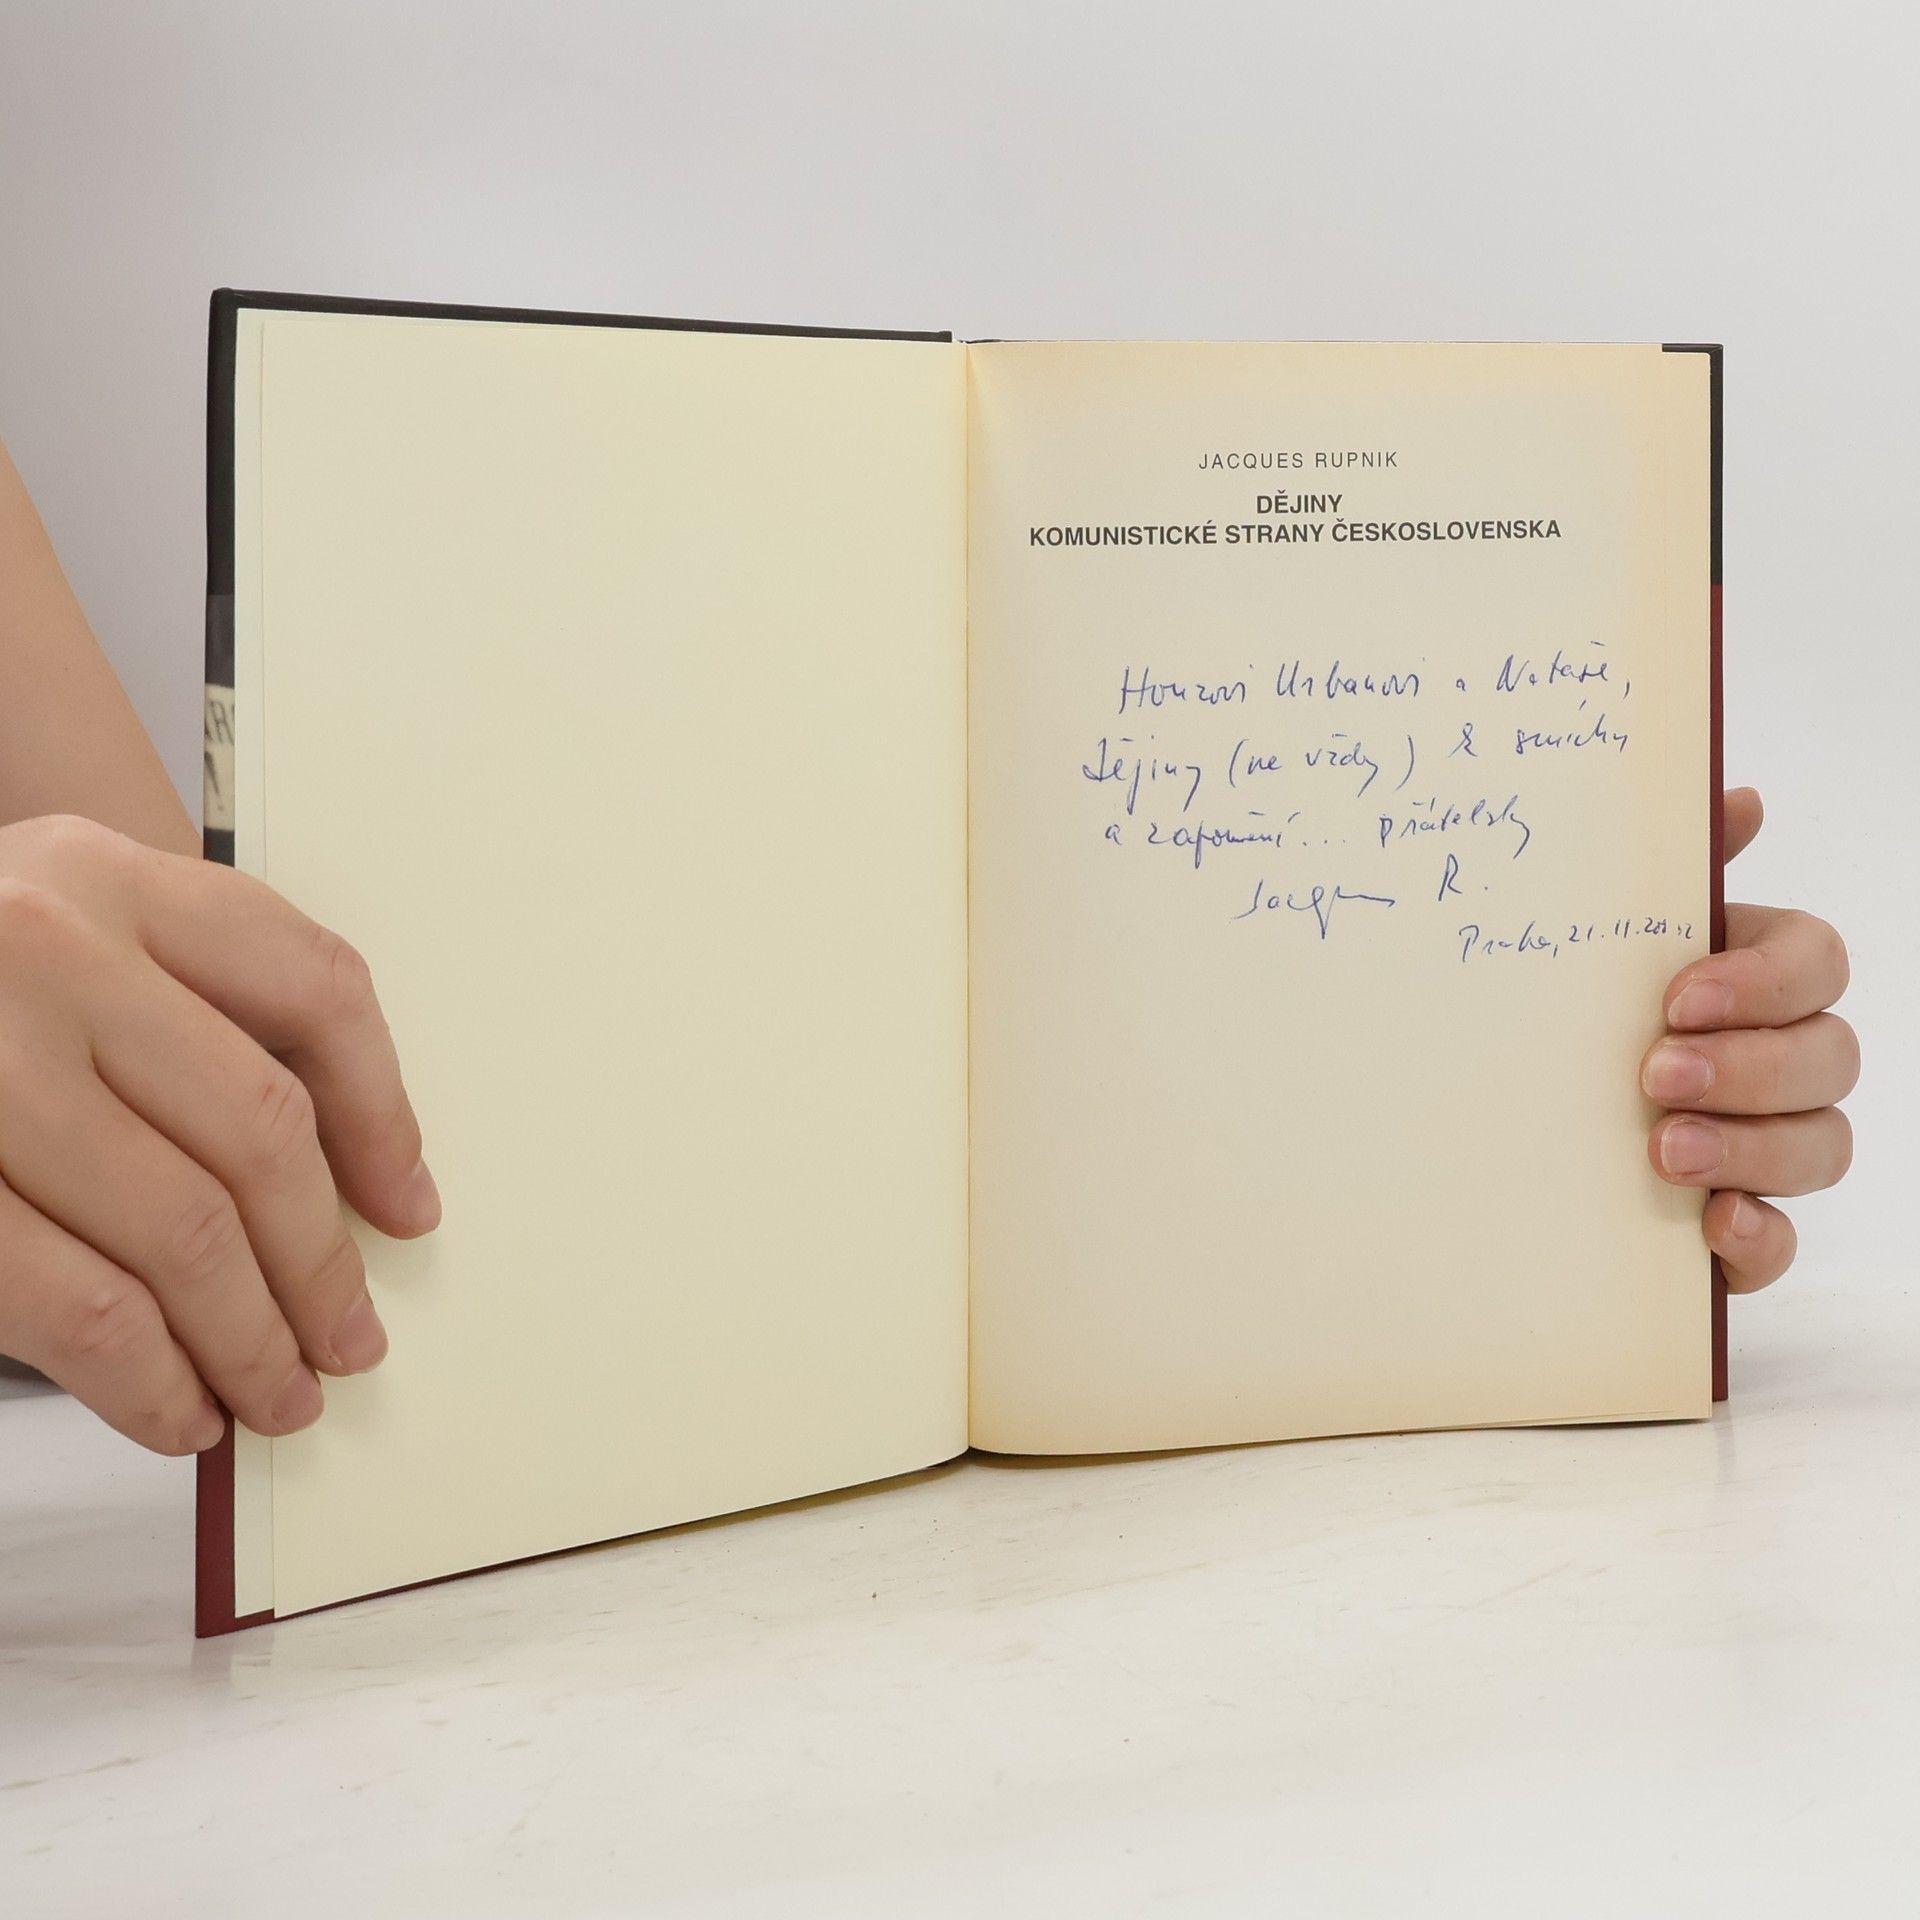 JACQUES RUPNIK
DĚJINY
KOMUNISTICKÉ STRANY ČESKOSLOVENSKA
Honzovi Urbanovi a Nataše,
dějiny (ne vždy) k smíchu
a zapomění... přátelsky
Jacques R.
Praha, 21.11.2002